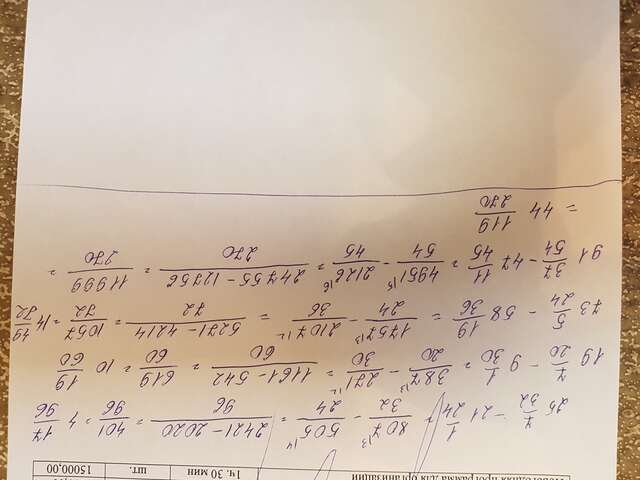 Новогодняя программа для организаций 1ч. 30 мин шт. 15000,00
25 7/32 - 21 1/24 = 807\3/32 - 505\4/24 = 2421 - 2020/96 = 401/96 = 4 17/96
19 7/20 - 9 1/30 = 387\3/20 - 271\2/30 = 1161 - 542/60 = 619/60 = 10 19/60
73 5/24 - 58 19/36 = 1757\3/24 - 2107\2/36 = 5271 - 4214/72 = 1057/72 = 14 49/72
91 37/54 - 47 11/45 = 4951\5/54 - 2126\6/45 = 24755 - 12756/270 = 11999/270 =
= 44 119/270